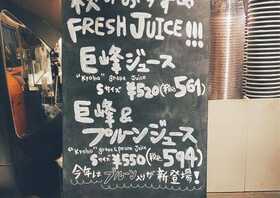 秋のおすすめ
FRESH JUICE!!!
巨峰ジュース
"Kyoho" grape Juice
Sサイズ ¥520(税込561)
巨峰&
プルーンジュース
"Kyoho" grape & prune Juice
Sサイズ ¥550(税込594)
今年はプルーン入りが新登場!